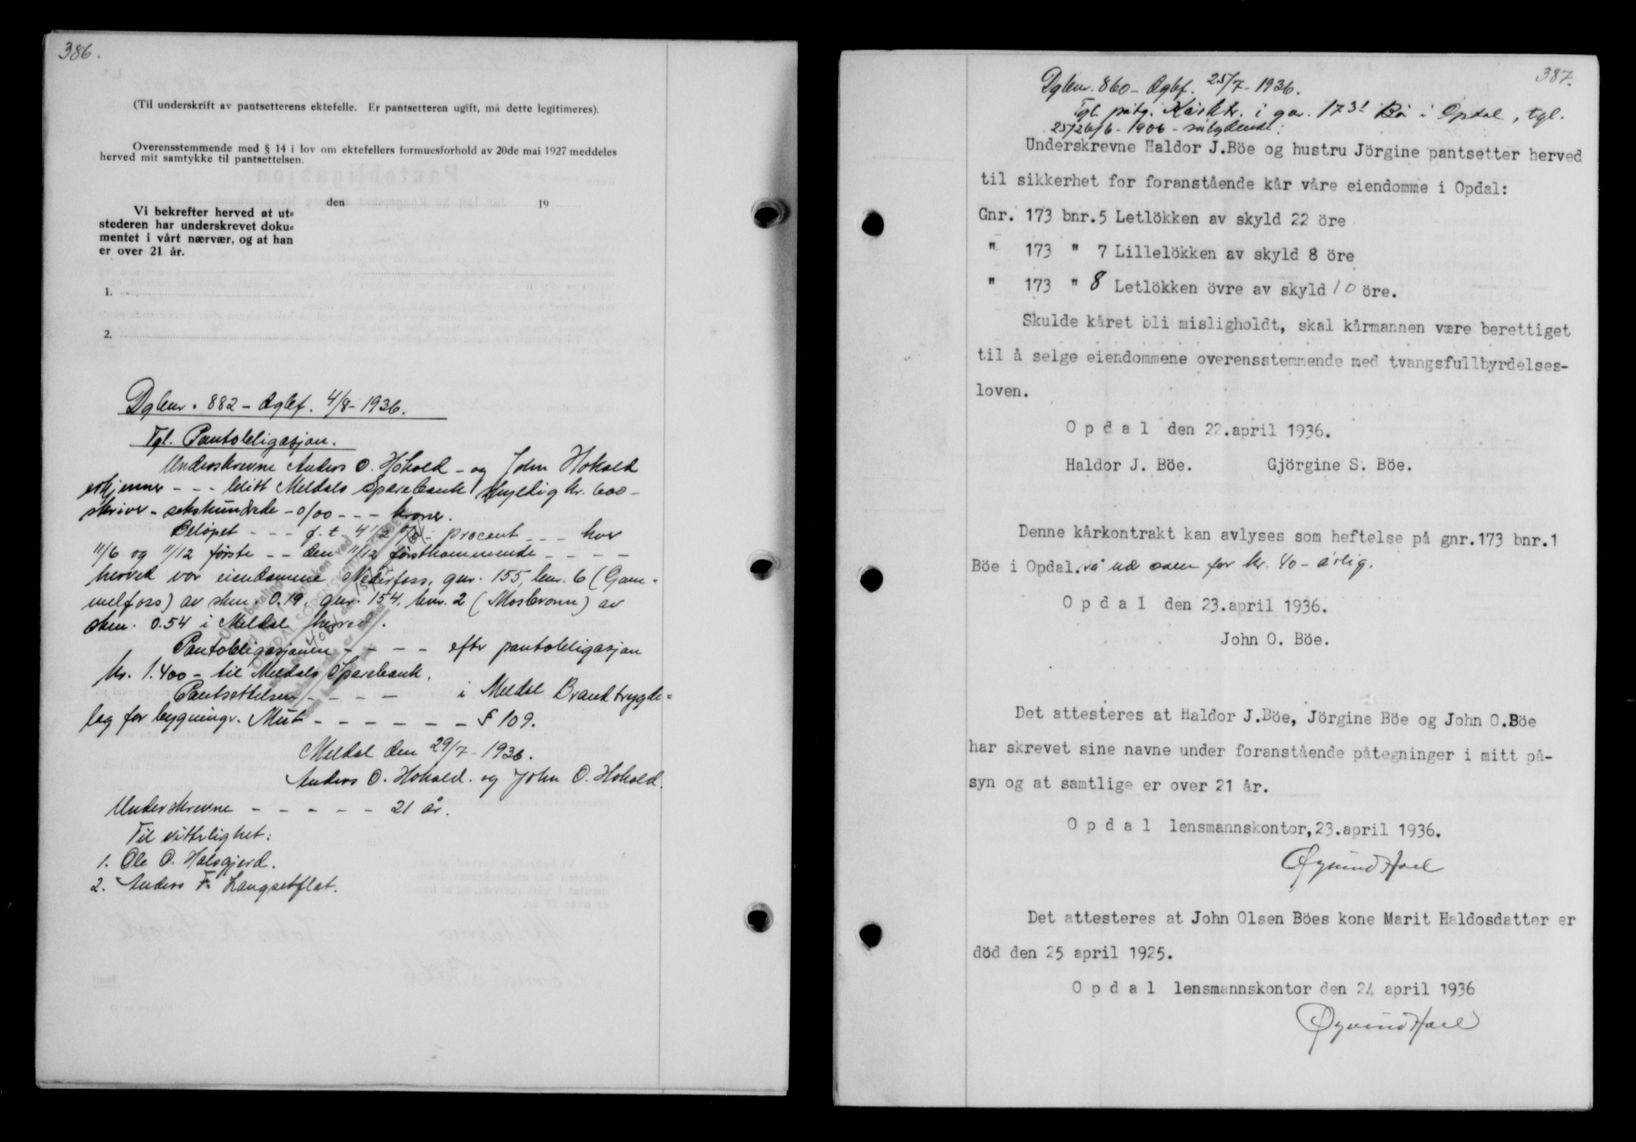 386.
(Til underskrift av pantsetterens ektefelle. Er pantsetteren ugift, må dette legitimeres).
Overensstemmende med § 14 i lov om ektefellers formuesforhold av 20de mai 1927 meddeles
herved mit samtykke til pantsettelsen.
den 19
Vi bekrefter herved at ut-
stederen har underskrevet doku-
mentet i vårt nærvær, og at han
er over 21 år.
1.
2.
Dgbnr. 882 - dgbf. 4/8-1936.
Tgl. Pantobligasjon.
Underskrevne Anders O. Hoksold - og John Hoksold
erkjenner - - - blitt Meldals Sparebank skyldig kr. 600 -
skriver - sekshundrede - 0/00 - - - kroner.
Beløpet - - - f. t. 4 1/2 % - procent - - - hver
11/6 og 11/12 første - - den 11/12 førstkommende - - - -
herved vor eiendomme Nederfoss, gnr. 155, bnr. 6 (Gam-
melfoss) av skm. 0.19, gnr. 154, bnr. 2 (Mosbronn) av
skm. 0.54 i Meldal herred.
Pantobligasjonen - - - - efter pantobligasjon
kr. 1.400 - til Meldals Sparebank.
Pantsettelsen - - - - i Meldal Brandtrygde-
lag for bygningr. Mut - - - - - - S 109.
Meldal den 29/7-1936.
Anders O. Hoksold. og John O. Hoksold.
Underskrevne - - - - - 21 år.
Til vitterlighet:
1. Ole O. Halsgjerd.
2. Anders F. Langsetflat.
387.
Dgbnr. 860 - dgbf. 25/7-1936.
Tgl. påtg. Kårktr. i gnr. 173 1 Bö i Opdal, tgl.
25/26/6-1906 - sålydende:
Underskrevne Haldor J.Böe og hustru Jörgine pantsetter herved
til sikkerhet for foranstående kår våre eiendomme i Opdal:
Gnr. 173 bnr.5 Letlökken av skyld 22 öre
" 173 " 7 Lillelökken av skyld 8 öre
" 173 " 8 Letlökken övre av skyld 10 öre.
Skulde kåret bli misligholdt, skal kårmannen være berettiget
til å selge eiendommene overensstemmende med tvangsfullbyrdelses-
loven.
O p d a l den 22.april 1936.
Haldor J. Böe. Gjörgine S. Böe.
Denne kårkontrakt kan avlyses som heftelse på gnr.173 bnr.1
Böe i Opdal. for kr. 40 - årlig.
O p d a l den 23.april 1936.
John O. Böe.
Det attesteres at Haldor J.Böe, Jörgine Böe og John O.Böe
har skrevet sine navne under foranstående påtegninger i mitt på-
syn og at samtlige er over 21 år.
O p d a l lensmannskontor,23.april 1936.
Øyvind Hoel
Det attesteres at John Olsen Böes kone Marit Haldosdatter er
död den 25 april 1925.
O p d a l lensmannskontor den 24 april 1936
Øyvind Hoel